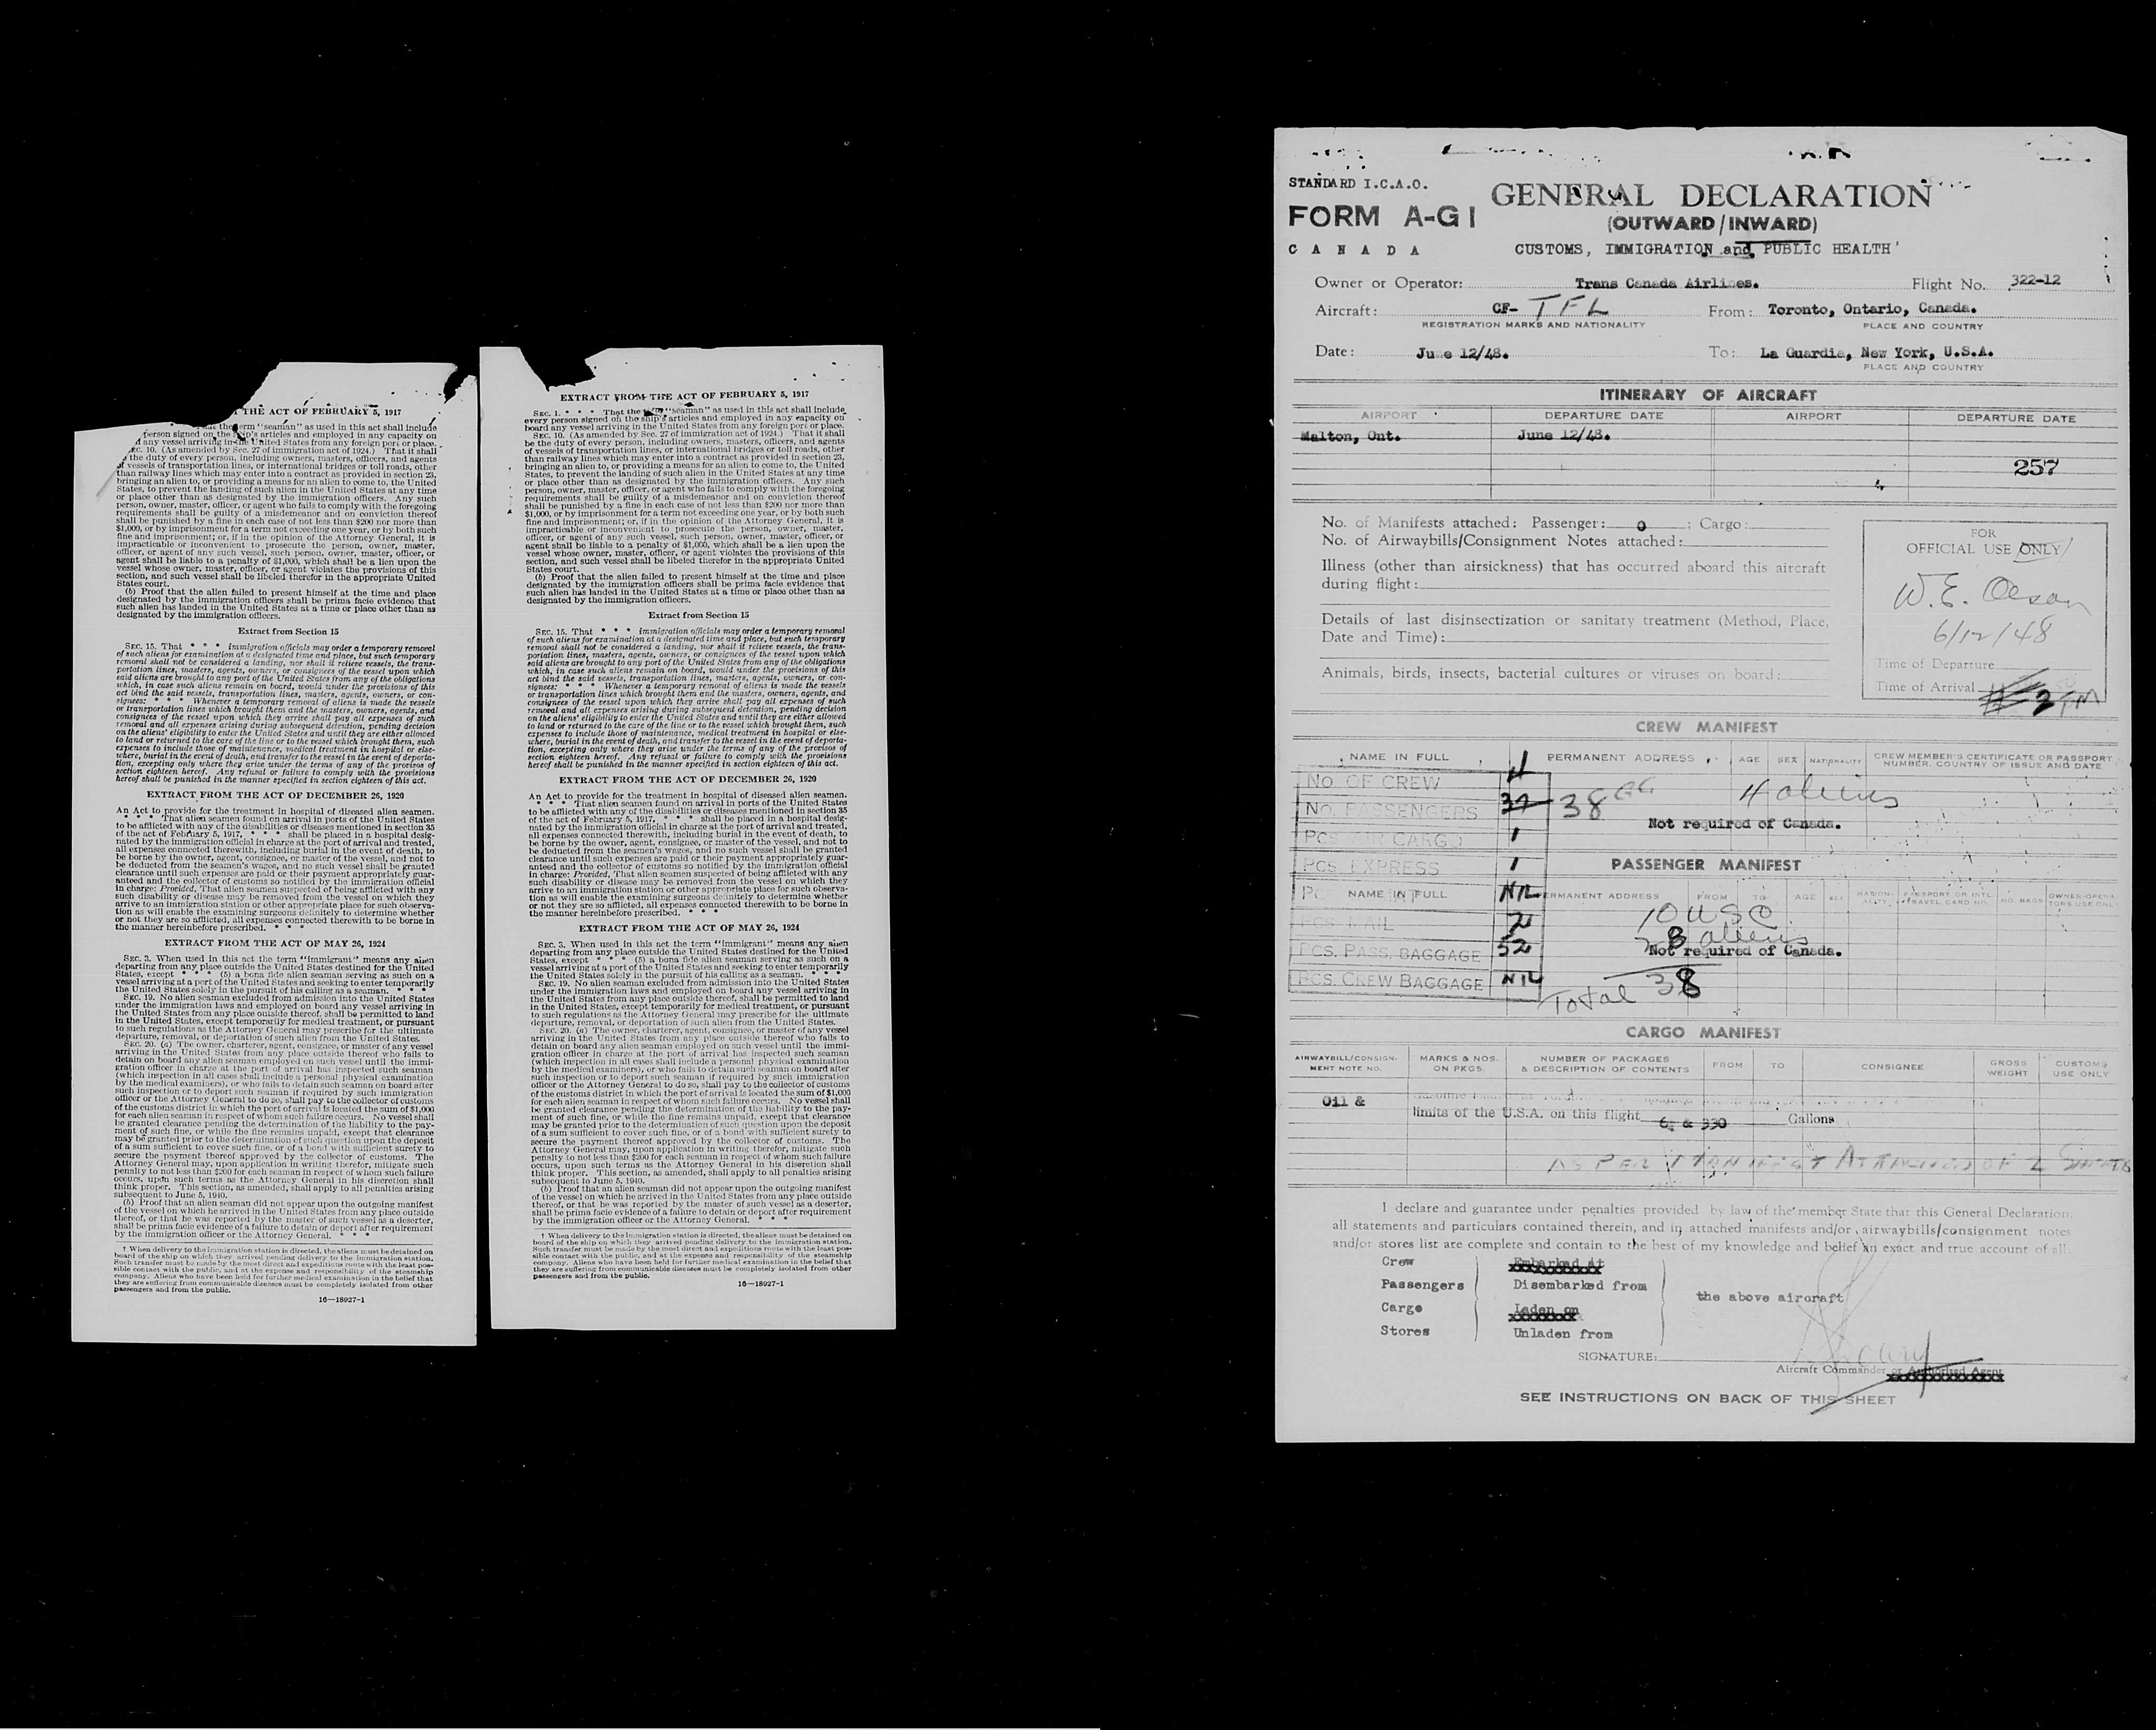 THE ACT OF FEBRUARY 5, 1917
the term "seaman" as used in this act shall include
person signed on the ship's articles and employed in any capacity on
any vessel arriving in the United States from any foreign port or place.
SEC. 10. (As amended by Sec. 27 of immigration act of 1924.) That it shall
be the duty of every person, including owners, masters, officers, and agents
of vessels of transportation lines, or international bridges or toll roads, other
than railway lines which may enter into a contract as provided in section 23,
bringing an alien to, or providing a means for an alien to come to, the United
States, to prevent the landing of such alien in the United States at any time
or place other than as designated by the immigration officers. Any such
person, owner, master, officer, or agent who fails to comply with the foregoing
requirements shall be guilty of a misdemeanor and on conviction thereof
shall be punished by a fine in each case of not less than $200 nor more than
$1,000, or by imprisonment for a term not exceeding one year, or by both such
fine and imprisonment; or, if in the opinion of the Attorney General, it is
impracticable or inconvenient to prosecute the person, owner, master,
officer, or agent of any such vessel, such person, owner, master, officer, or
agent shall be liable to a penalty of $1,000, which shall be a lien upon the
vessel whose owner, master, officer, or agent violates the provisions of this
section, and such vessel shall be libeled therefor in the appropriate United
States court.
(b) Proof that the alien failed to present himself at the time and place
designated by the immigration officers shall be prima facie evidence that
such alien has landed in the United States at a time or place other than as
designated by the immigration officers.
Extract from Section 15
SEC. 15. That * * * immigration officials may order a temporary removal
of such aliens for examination at a designated time and place, but such temporary
removal shall not be considered a landing, nor shall it relieve vessels, the trans-
portation lines, masters, agents, owners, or consignees of the vessel upon which
said aliens are brought to any port of the United States from any of the obligations
which, in case such aliens remain on board, would under the provisions of this
act bind the said vessels, transportation lines, masters, agents, owners, or con-
signees: * * * Whenever a temporary removal of aliens is made the vessels
or transportation lines which brought them and the masters, owners, agents, and
consignees of the vessel upon which they arrive shall pay all expenses of such
removal and all expenses arising during subsequent detention, pending decision
on the aliens' eligibility to enter the United States and until they are either allowed
to land or returned to the care of the line or to the vessel which brought them, such
expenses to include those of maintenance, medical treatment in hospital or else-
where, burial in the event of death, and transfer to the vessel in the event of deporta-
tion, excepting only where they arise under the terms of any of the provisos of
section eighteen hereof. Any refusal or failure to comply with the provisions
hereof shall be punished in the manner specified in section eighteen of this act.
EXTRACT FROM THE ACT OF DECEMBER 26, 1920
An Act to provide for the treatment in hospital of diseased alien seamen.
* * * That alien seamen found on arrival in ports of the United States
to be afflicted with any of the disabilities or diseases mentioned in section 35
of the act of February 5, 1917, * * * shall be placed in a hospital desig-
nated by the immigration official in charge at the port of arrival and treated,
all expenses connected therewith, including burial in the event of death, to
be borne by the owner, agent, consignee, or master of the vessel, and not to
be deducted from the seamen's wages, and no such vessel shall be granted
clearance until such expenses are paid or their payment appropriately guar-
anteed and the collector of customs so notified by the immigration official
in charge: Provided, That alien seamen suspected of being afflicted with any
such disability or disease may be removed from the vessel on which they
arrive to an immigration station or other appropriate place for such observa-
tion as will enable the examining surgeons definitely to determine whether
or not they are so afflicted, all expenses connected therewith to be borne in
the manner hereinbefore prescribed. * * *
EXTRACT FROM THE ACT OF MAY 26, 1924
SEC. 3. When used in this act the term "immigrant" means any alien
departing from any place outside the United States destined for the United
States, except * * * (5) a bona fide alien seaman serving as such on a
vessel arriving at a port of the United States and seeking to enter temporarily
the United States solely in the pursuit of his calling as a seaman. * * *
SEC. 19. No alien seaman excluded from admission into the United States
under the immigration laws and employed on board any vessel arriving in
the United States from any place outside thereof, shall be permitted to land
in the United States, except temporarily for medical treatment, or pursuant
to such regulations as the Attorney General may prescribe for the ultimate
departure, removal, or deportation of such alien from the United States.
SEC. 20. (a) The owner, charterer, agent, consignee, or master of any vessel
arriving in the United States from any place outside thereof who fails to
detain on board any alien seaman employed on such vessel until the immi-
gration officer in charge at the port of arrival has inspected such seaman
(which inspection in all cases shall include a personal physical examination
by the medical examiners), or who fails to detain such seaman on board after
such inspection or to deport such seaman if required by such immigration
officer or the Attorney General to do so, shall pay to the collector of customs
of the customs district in which the port of arrival is located the sum of $1,000
for each alien seaman in respect of whom such failure occurs. No vessel shall
be granted clearance pending the determination of the liability to the pay-
ment of such fine, or while the fine remains unpaid, except that clearance
may be granted prior to the determination of such question upon the deposit
of a sum sufficient to cover such fine, or of a bond with sufficient surety to
secure the payment thereof approved by the collector of customs. The
Attorney General may, upon application in writing therefor, mitigate such
penalty to not less than $200 for each seaman in respect of whom such failure
occurs, upon such terms as the Attorney General in his discretion shall
think proper. This section, as amended, shall apply to all penalties arising
subsequent to June 5, 1940.
(b) Proof that an alien seaman did not appear upon the outgoing manifest
of the vessel on which he arrived in the United States from any place outside
thereof, or that he was reported by the master of such vessel as a deserter,
shall be prima facie evidence of a failure to detain or deport after requirement
by the immigration officer or the Attorney General. * * *
† When delivery to the immigration station is directed, the aliens must be detained on
board of the ship on which they arrived pending delivery to the immigration station.
Such transfer must be made by the most direct and expeditious route with the least pos-
sible contact with the public, and at the expense and responsibility of the steamship
company. Aliens who have been held for further medical examination in the belief that
they are suffering from communicable diseases must be completely isolated from other
passengers and from the public.
16—18927-1
EXTRACT FROM THE ACT OF FEBRUARY 5, 1917
SEC. 1. * * * That the term "seaman" as used in this act shall include
every person signed on the ship's articles and employed in any capacity on
board any vessel arriving in the United States from any foreign port or place.
SEC. 10. (As amended by Sec. 27 of immigration act of 1924.) That it shall
be the duty of every person, including owners, masters, officers, and agents
of vessels of transportation lines, or international bridges or toll roads, other
than railway lines which may enter into a contract as provided in section 23,
bringing an alien to, or providing a means for an alien to come to, the United
States, to prevent the landing of such alien in the United States at any time
or place other than as designated by the immigration officers. Any such
person, owner, master, officer, or agent who fails to comply with the foregoing
requirements shall be guilty of a misdemeanor and on conviction thereof
shall be punished by a fine in each case of not less than $200 nor more than
$1,000, or by imprisonment for a term not exceeding one year, or by both such
fine and imprisonment; or, if in the opinion of the Attorney General, it is
impracticable or inconvenient to prosecute the person, owner, master,
officer, or agent of any such vessel, such person, owner, master, officer, or
agent shall be liable to a penalty of $1,000, which shall be a lien upon the
vessel whose owner, master, officer, or agent violates the provisions of this
section, and such vessel shall be libeled therefor in the appropriate United
States court.
(b) Proof that the alien failed to present himself at the time and place
designated by the immigration officers shall be prima facie evidence that
such alien has landed in the United States at a time or place other than as
designated by the immigration officers.
Extract from Section 15
SEC. 15. That * * * immigration officials may order a temporary removal
of such aliens for examination at a designated time and place, but such temporary
removal shall not be considered a landing, nor shall it relieve vessels, the trans-
portation lines, masters, agents, owners, or consignees of the vessel upon which
said aliens are brought to any port of the United States from any of the obligations
which, in case such aliens remain on board, would under the provisions of this
act bind the said vessels, transportation lines, masters, agents, owners, or con-
signees: * * * Whenever a temporary removal of aliens is made the vessels
or transportation lines which brought them and the masters, owners, agents, and
consignees of the vessel upon which they arrive shall pay all expenses of such
removal and all expenses arising during subsequent detention, pending decision
on the aliens' eligibility to enter the United States and until they are either allowed
to land or returned to the care of the line or to the vessel which brought them, such
expenses to include those of maintenance, medical treatment in hospital or else-
where, burial in the event of death, and transfer to the vessel in the event of deporta-
tion, excepting only where they arise under the terms of any of the provisos of
section eighteen hereof. Any refusal or failure to comply with the provisions
hereof shall be punished in the manner specified in section eighteen of this act.
EXTRACT FROM THE ACT OF DECEMBER 26, 1920
An Act to provide for the treatment in hospital of diseased alien seamen.
* * * That alien seamen found on arrival in ports of the United States
to be afflicted with any of the disabilities or diseases mentioned in section 35
of the act of February 5, 1917, * * * shall be placed in a hospital desig-
nated by the immigration official in charge at the port of arrival and treated,
all expenses connected therewith, including burial in the event of death, to
be borne by the owner, agent, consignee, or master of the vessel, and not to
be deducted from the seamen's wages, and no such vessel shall be granted
clearance until such expenses are paid or their payment appropriately guar-
anteed and the collector of customs so notified by the immigration official
in charge: Provided, That alien seamen suspected of being afflicted with any
such disability or disease may be removed from the vessel on which they
arrive to an immigration station or other appropriate place for such observa-
tion as will enable the examining surgeons definitely to determine whether
or not they are so afflicted, all expenses connected therewith to be borne in
the manner hereinbefore prescribed. * * *
EXTRACT FROM THE ACT OF MAY 26, 1924
SEC. 3. When used in this act the term "immigrant" means any alien
departing from any place outside the United States destined for the United
States, except * * * (5) a bona fide alien seaman serving as such on a
vessel arriving at a port of the United States and seeking to enter temporarily
the United States solely in the pursuit of his calling as a seaman. * * *
SEC. 19. No alien seaman excluded from admission into the United States
under the immigration laws and employed on board any vessel arriving in
the United States from any place outside thereof, shall be permitted to land
in the United States, except temporarily for medical treatment, or pursuant
to such regulations as the Attorney General may prescribe for the ultimate
departure, removal, or deportation of such alien from the United States.
SEC. 20. (a) The owner, charterer, agent, consignee, or master of any vessel
arriving in the United States from any place outside thereof who fails to
detain on board any alien seaman employed on such vessel until the immi-
gration officer in charge at the port of arrival has inspected such seaman
(which inspection in all cases shall include a personal physical examination
by the medical examiners), or who fails to detain such seaman on board after
such inspection or to deport such seaman if required by such immigration
officer or the Attorney General to do so, shall pay to the collector of customs
of the customs district in which the port of arrival is located the sum of $1,000
for each alien seaman in respect of whom such failure occurs. No vessel shall
be granted clearance pending the determination of the liability to the pay-
ment of such fine, or while the fine remains unpaid, except that clearance
may be granted prior to the determination of such question upon the deposit
of a sum sufficient to cover such fine, or of a bond with sufficient surety to
secure the payment thereof approved by the collector of customs. The
Attorney General may, upon application in writing therefor, mitigate such
penalty to not less than $200 for each seaman in respect of whom such failure
occurs, upon such terms as the Attorney General in his discretion shall
think proper. This section, as amended, shall apply to all penalties arising
subsequent to June 5, 1940.
(b) Proof that an alien seaman did not appear upon the outgoing manifest
of the vessel on which he arrived in the United States from any place outside
thereof, or that he was reported by the master of such vessel as a deserter,
shall be prima facie evidence of a failure to detain or deport after requirement
by the immigration officer or the Attorney General. * * *
† When delivery to the immigration station is directed, the aliens must be detained on
board of the ship on which they arrived pending delivery to the immigration station.
Such transfer must be made by the most direct and expeditious route with the least pos-
sible contact with the public, and at the expense and responsibility of the steamship
company. Aliens who have been held for further medical examination in the belief that
they are suffering from communicable diseases must be completely isolated from other
passengers and from the public.
16—18927-1
STANDARD I.C.A.O.
FORM A-G1
CANADA
GENERAL DECLARATION
(OUTWARD/INWARD)
CUSTOMS, IMMIGRATION and PUBLIC HEALTH
Owner or Operator: Trans Canada Airlines. Flight No. 322-12
Aircraft: CF- TFL From: Toronto, Ontario, Canada.
REGISTRATION MARKS AND NATIONALITY PLACE AND COUNTRY
Date: June 12/48. To: La Guardia, New York, U.S.A.
PLACE AND COUNTRY
ITINERARY OF AIRCRAFT
AIRPORT DEPARTURE DATE AIRPORT DEPARTURE DATE
Malton, Ont. June 12/48.
257
No. of Manifests attached: Passenger: 0 ; Cargo:
No. of Airwaybills/Consignment Notes attached:
Illness (other than airsickness) that has occurred aboard this aircraft
during flight:
Details of last disinsectization or sanitary treatment (Method, Place,
Date and Time):
Animals, birds, insects, bacterial cultures or viruses on board:
FOR
OFFICIAL USE ONLY
W.E. Olson
6/12/48
Time of Departure
Time of Arrival 2 PM
CREW MANIFEST
NAME IN FULL PERMANENT ADDRESS AGE SEX NATIONALITY CREW MEMBER'S CERTIFICATE OR PASSPORT NUMBER. COUNTRY OF ISSUE AND DATE
No. OF CREW 4
No. PASSENGERS 37 38 4 aliens
Not required of Canada.
PCS. CARGO 1
PCS. EXPRESS 1
PASSENGER MANIFEST
NAME IN FULL PERMANENT ADDRESS FROM TO AGE SEX NATIONALITY PASSPORT OR INTL TRAVEL CARD NO. NO BAGS OWNER-OPERATORS USE ONLY
NIL
10 USC
PCS. MAIL 2
28 aliens
PCS. PASS. BAGGAGE 52
Not required of Canada.
PCS. CREW BAGGAGE NIL
Total 38
CARGO MANIFEST
AIRWAYBILL/CONSIGNMENT NOTE NO. MARKS & NOS. ON PKGS. NUMBER OF PACKAGES & DESCRIPTION OF CONTENTS FROM TO CONSIGNEE GROSS WEIGHT CUSTOMS USE ONLY
Oil &
limits of the U.S.A. on this flight 6 & 330 Gallons
AS PER MANIFEST ATTACHED OF 2 SHEETS
I declare and guarantee under penalties provided by law of the member State that this General Declaration,
all statements and particulars contained therein, and in attached manifests and/or airwaybills/consignment notes
and/or stores list are complete and contain to the best of my knowledge and belief an exact and true account of all:
Crew Embarked At
Passengers Disembarked from
the above aircraft
Cargo Laden on
Stores Unladen from
SIGNATURE:
Aircraft Commander or Authorized Agent
SEE INSTRUCTIONS ON BACK OF THIS SHEET